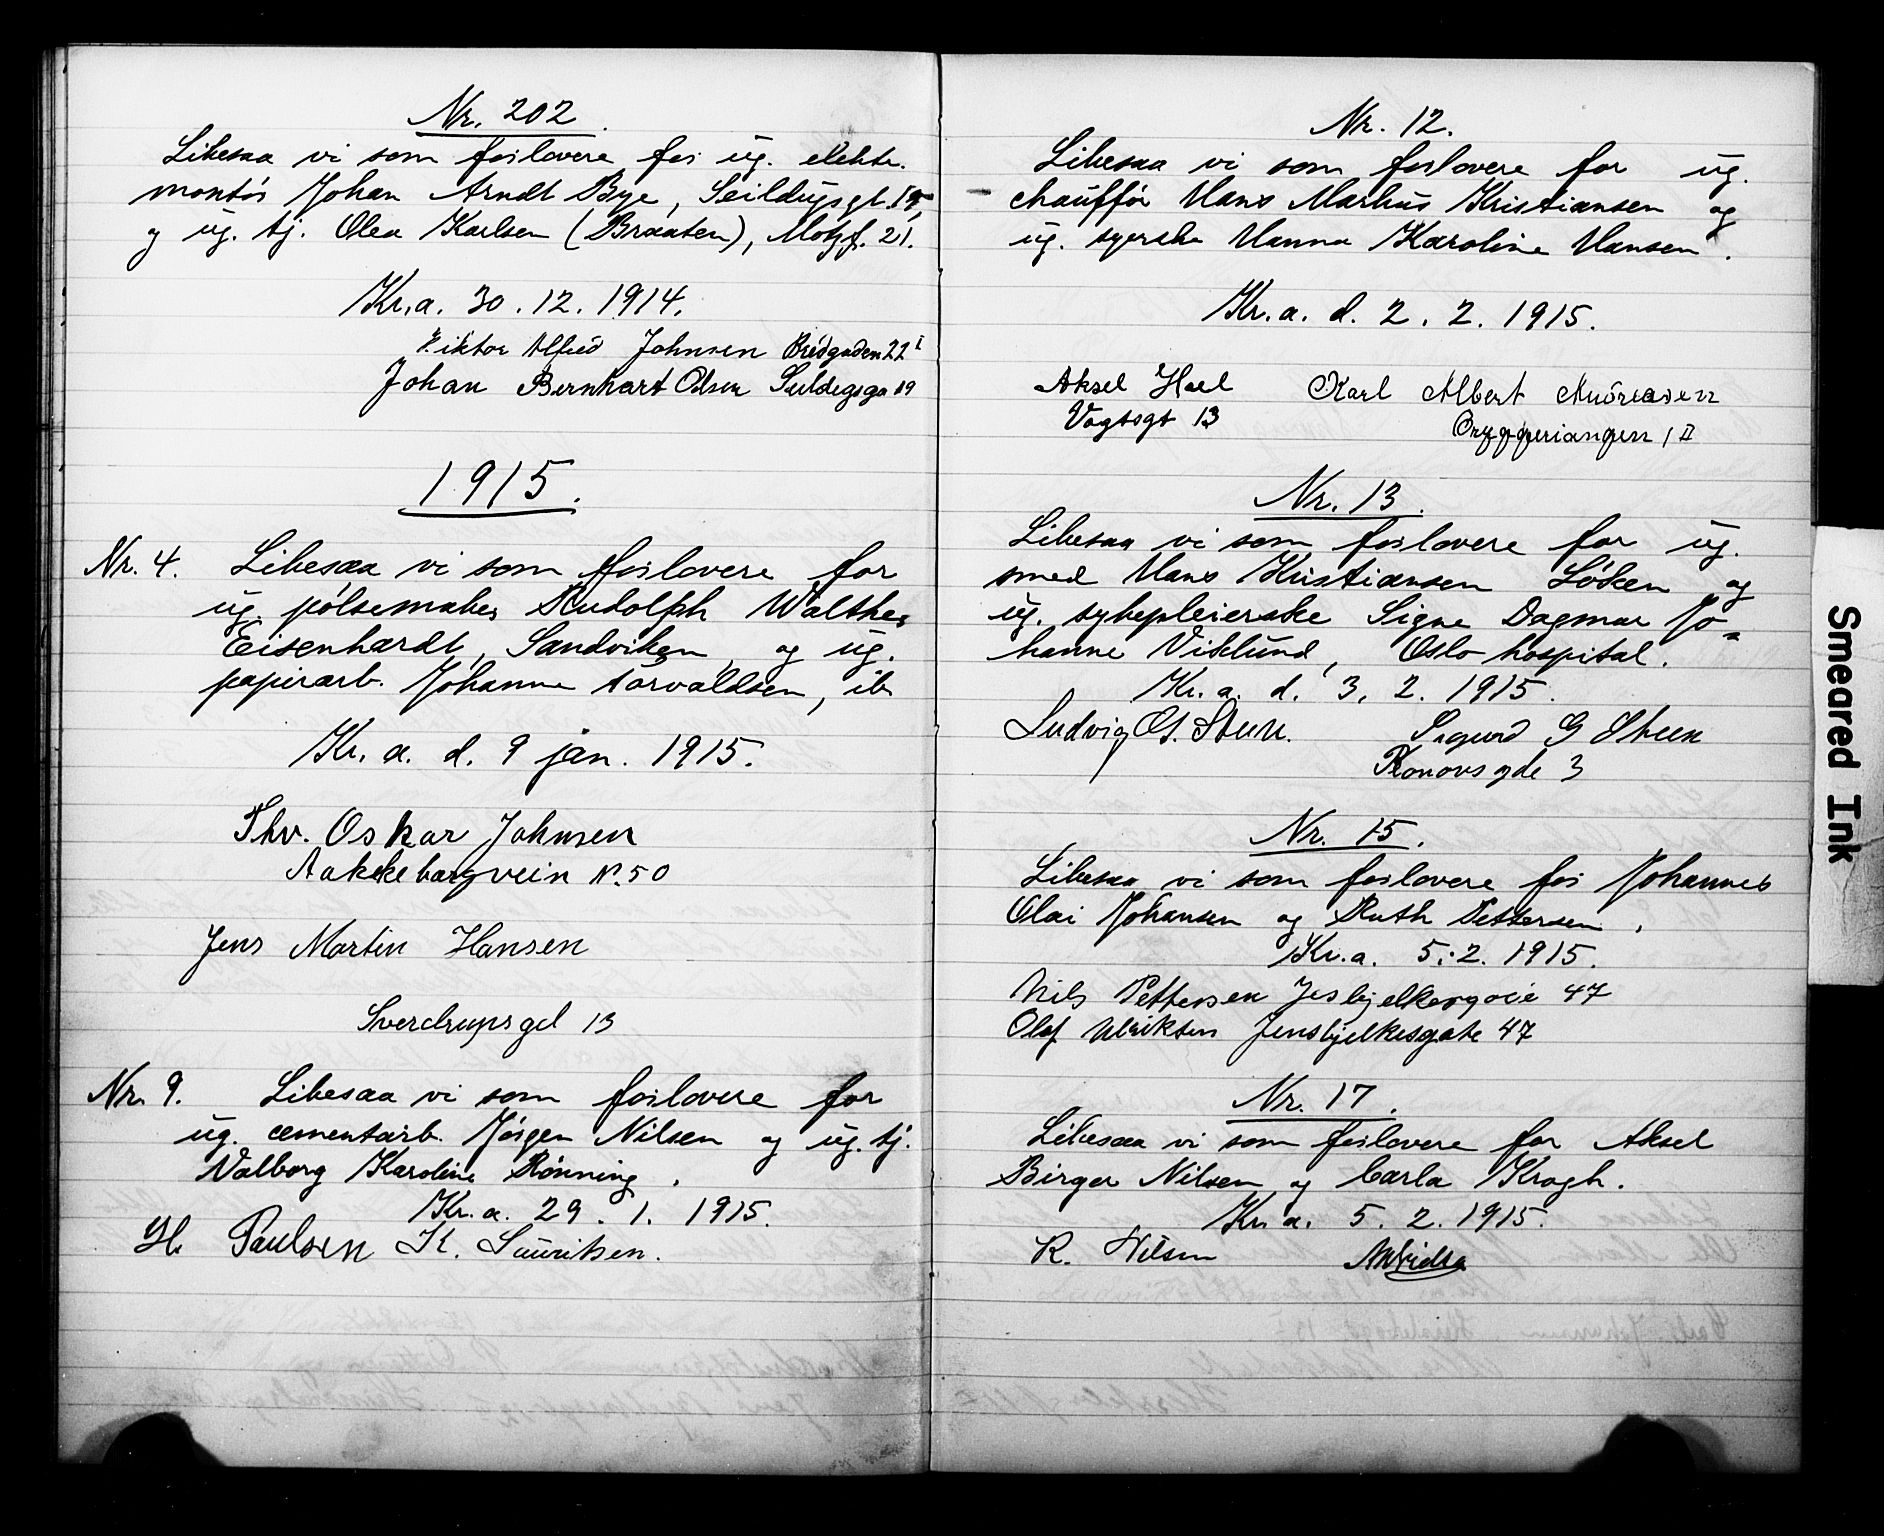 Nr. 202.
Likesaa vi som forlovere for ug. elektr.
montör Johan Arndt Bye, Seildugsgt. 19,
og ug. tj. Olea Karlsen (Braaten), Motzf. 21.
Kr.a. 30.12.1914.
Viktor Alfred Johnsen Bredgaden 22 I
Johan Bernhart Olsen 19
1915.
Nr. 4. Likesaa vi som forlovere for
ug. pölsemaker Rudolph Walther
Eisenhardt, Sandviken, og ug.
papirarb. Johanne Torvaldsen, ib
Kr. a. d. 9 jan. 1915.
Thv. Oskar Johnsen
Aakekebargvein No. 50
Jens Martin Hansen
Sverdrupsgd 13
Nr. 9. Likesaa vi som forlovere for
ug. cementarb. Jörgen Nilsen og ug. tj.
Valborg Karoline Rönning.
Kr. a. 29. 1. 1915.
H. Paulsen K. Lauritsen.
Nr. 12.
Likesaa vi som forlovere for ug.
chaufför Hans Markus Kristiansen og
ug. syerske Hanna Karoline Hansen.
Kr. a. d. 2. 2. 1915.
Aksel Hoel Karl Albert Andreasen
Vogtsgt 13 Bryggeriangen 1 II
Nr. 13.
Likesaa vi som forlovere for ug.
smed Hans Kristiansen Löken og
ug. sykepleierske Signe Dagmar Jo=
hanne Viklund, Oslo hospital.
Kr. a. d. 3. 2. 1915.
Ludvig O. Steen. Sigurd G Steen
Ronovsgde 3
Nr. 15.
Likesaa vi som forlovere for Johannes
Olai Johansen og Ruth Pettersen.
Kr. a. 5. 2. 1915.
Nils Pettersen 47
Olaf Ulriksen Jensbjelkesgate 47
Nr. 17.
Likesaa vi som forlovere for Aksel
Birger Nilsen og Carla Krogh.
Kr. a. 5. 2. 1915.
R. Nilsen
Smeared Ink